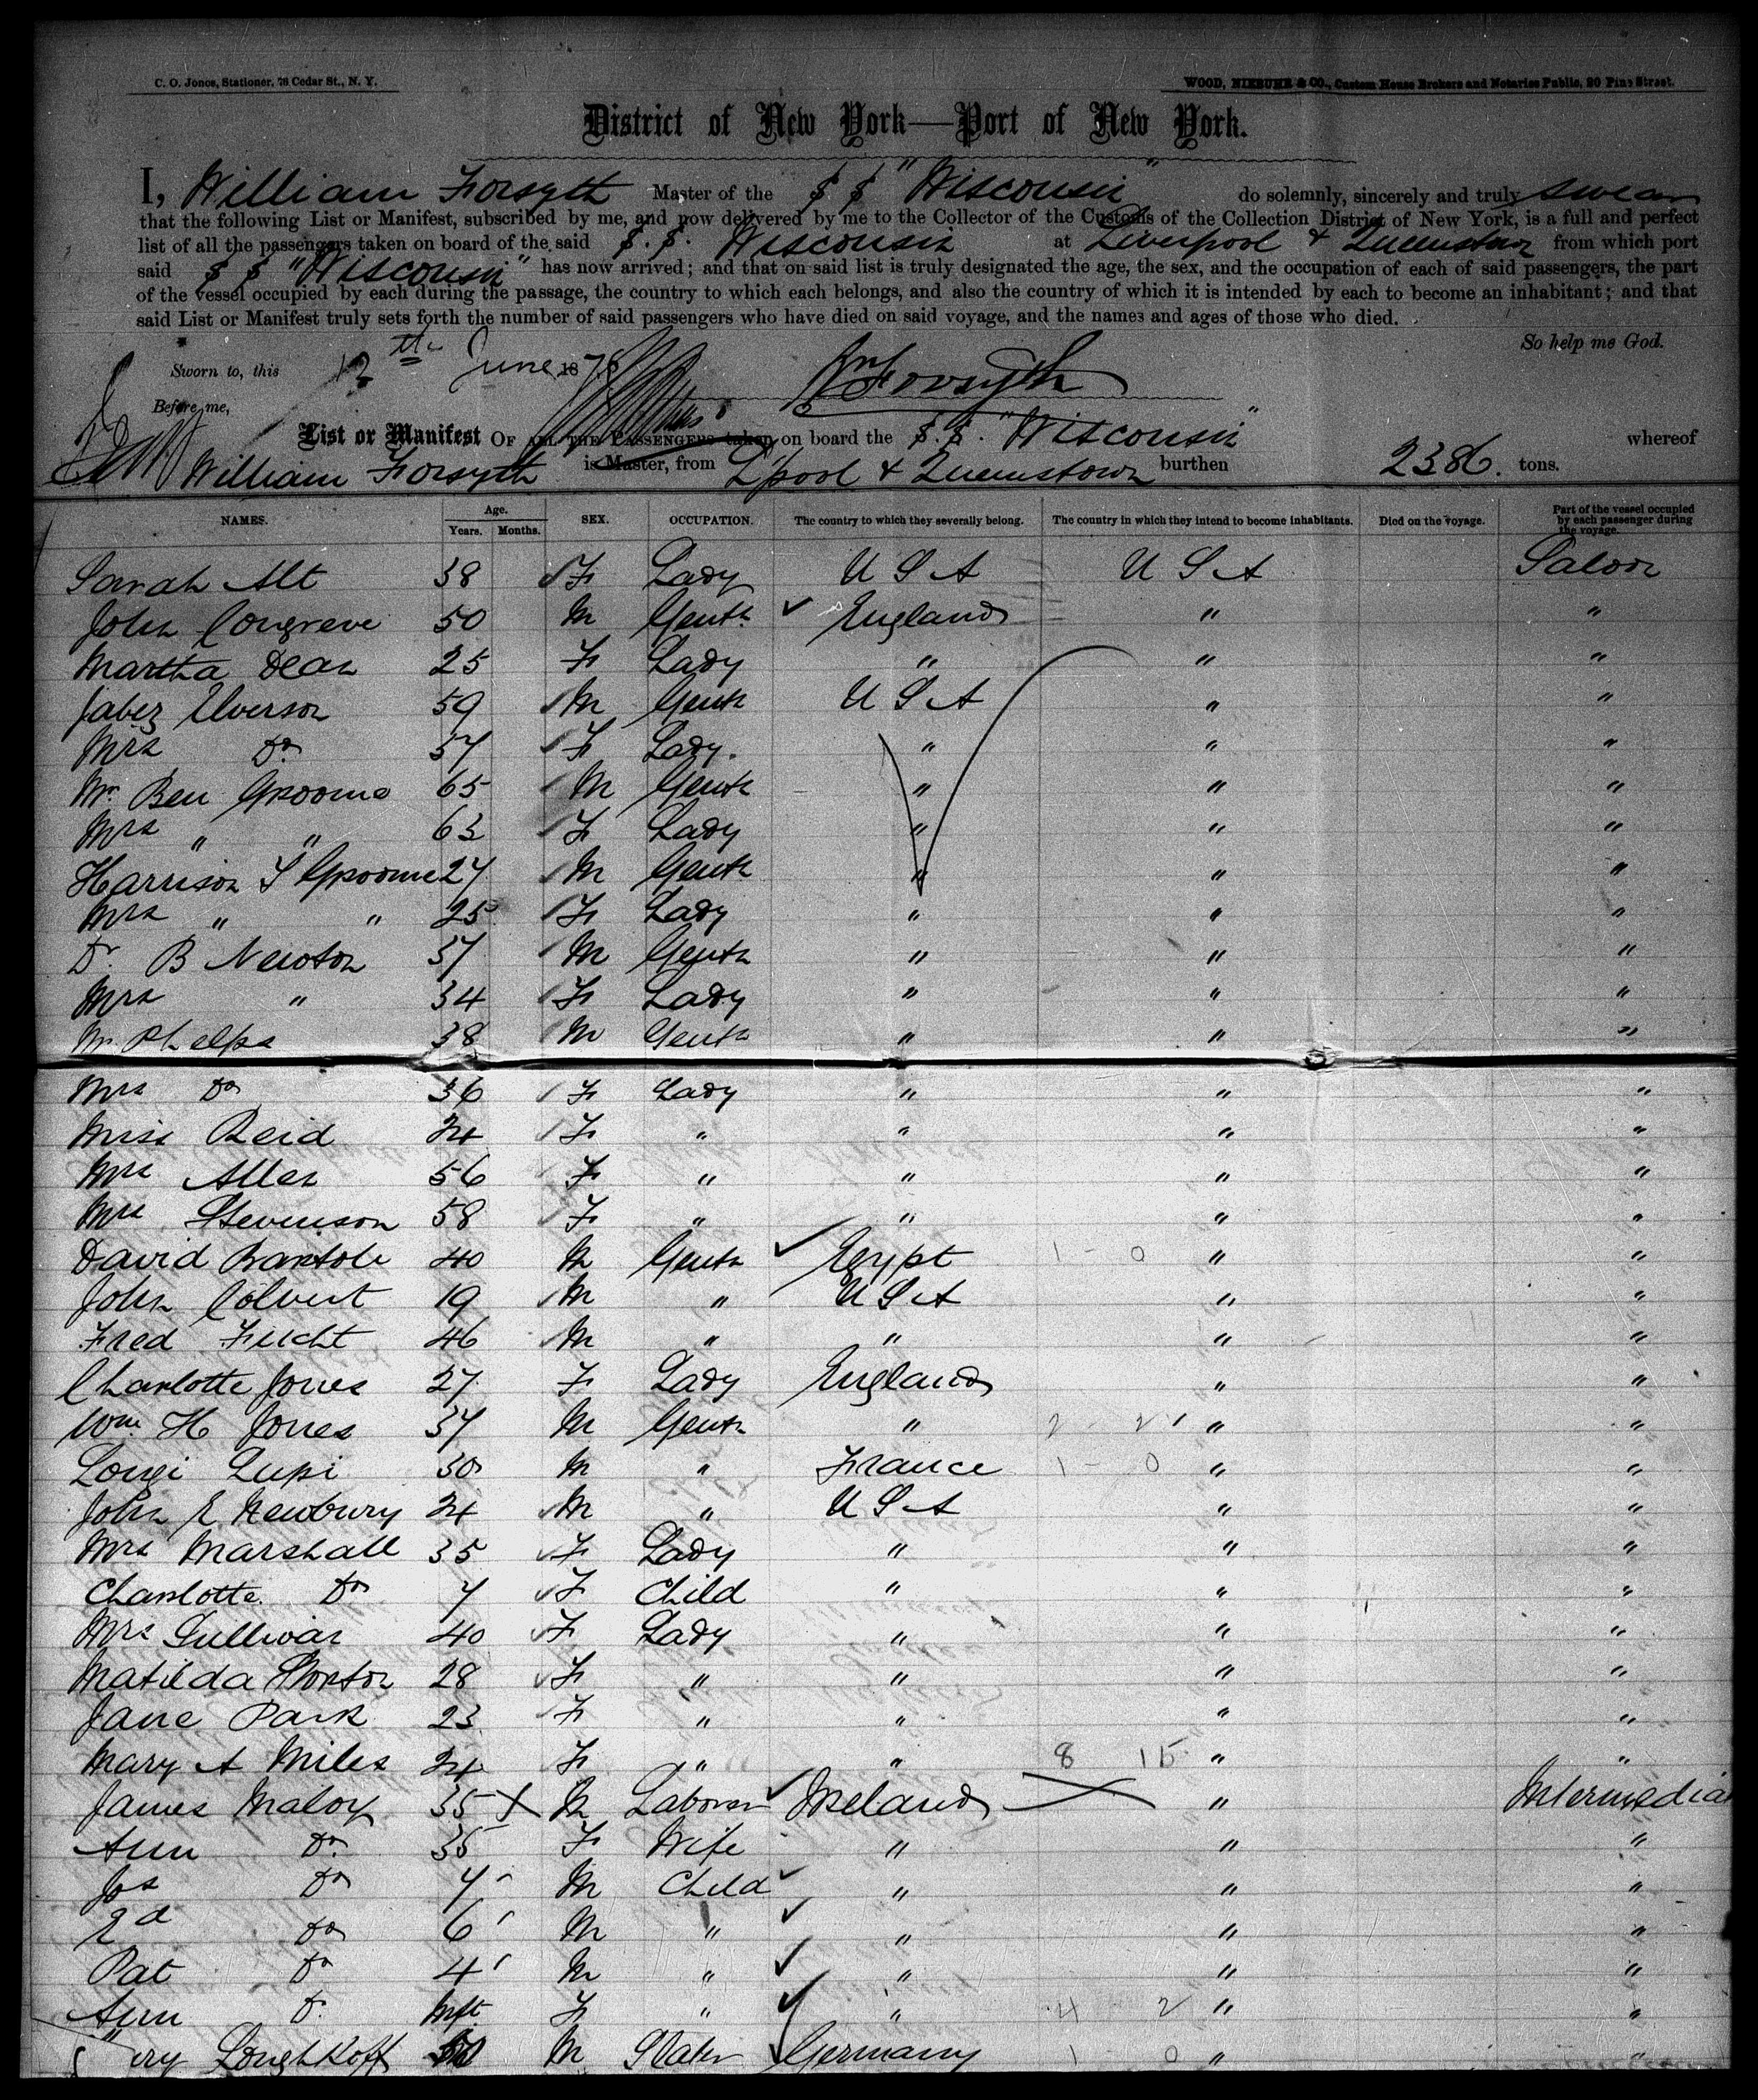 C. O. Jones, Stationer, 78 Cedar St., N. Y.
WOOD, NIEBUHR & CO., Custom House Brokers and Notaries Public, 20 Pine Street.
District of New York—Port of New York.
I, William Forsyth Master of the S S "Wisconsin" do solemnly, sincerely and truly swear
that the following List or Manifest, subscribed by me, and now delivered by me to the Collector of the Customs of the Collection District of New York, is a full and perfect
list of all the passengers taken on board of the said S. S. Wisconsin at Liverpool & Queenstown from which port
said S S "Wisconsin" has now arrived; and that on said list is truly designated the age, the sex, and the occupation of each of said passengers, the part
of the vessel occupied by each during the passage, the country to which each belongs, and also the country of which it is intended by each to become an inhabitant; and that
said List or Manifest truly sets forth the number of said passengers who have died on said voyage, and the names and ages of those who died.
So help me God.
Sworn to, this 12th June 187
Wm Forsyth
Before me,
List or Manifest OF ALL THE PASSENGERS taken on board the S. S. "Wisconsin" whereof
William Forsyth is Master, from L'pool & Queenstown burthen 2386. tons.
NAMES. Age. Years. Months. SEX. OCCUPATION. The country to which they severally belong. The country in which they intend to become inhabitants. Died on the voyage. Part of the vessel occupied by each passenger during the voyage.
Sarah Alt 38 F Lady U S A U S A Saloon
John Congreve 50 M Gentn England " "
Martha Dean 25 F Lady " " "
Jabez Elverson 59 M Gentn U S A " "
Mrs Do 57 F Lady. " " "
Mr. Ben Groome 65 M Gentn " " "
Mrs " " 63 F Lady " " "
Harrison S Groome 27 M Gentn " " "
Mrs " " 25 F Lady " " "
Dr. B Newton 37 M Gentn " " "
Mrs " 34 F Lady " " "
Mr Phelps 38 M Gentn " " "
Mrs Do 36 F Lady " " "
Miss Reid 24 F " " " "
Mrs Allen 56 F " " " "
Mrs Stevenson 58 F " " " "
David Bartole 40 M Gentn Egypt 1 - 0 " "
John Colvert 19 M " U S A " "
Fred Fucht 46 M " " " "
Charlotte Jones 27 F Lady England " "
Wm. H Jones 37 M Gentn " 2 - 2 " "
Longi Lupi 30 M " France 1 - 0 " "
John E Newbury 24 M " U S A " "
Mrs Marshall 35 F Lady " " "
Charlotte Do 7 F Child " " "
Mrs Sullivan 40 F Lady " " "
Matilda Norton 28 F " " " "
Jane Park 23 F " " " "
Mary A Miles 24 F " " 8 15 " "
James Maloy 35 M Laborer Ireland " Intermediat
Ann Do. 35 F Wife " " "
Jos Do 7 M Child " " "
Ed Do 6 M " " " "
Pat Do 4 M " " " "
Ann D. Inft. F " " 4 2 " "
Loughkoff M Germany 1 0 " "